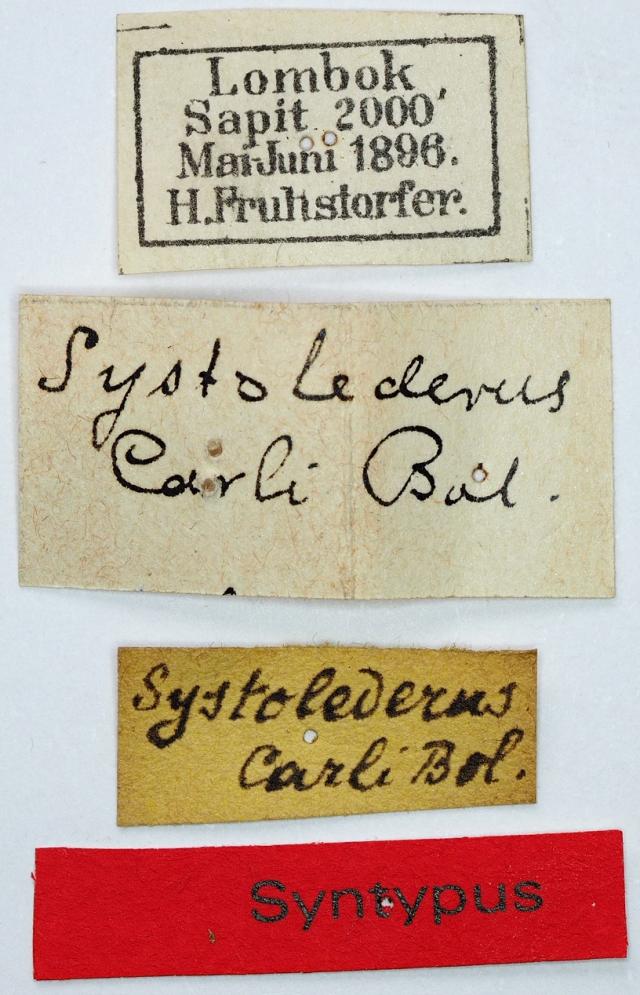 Lombok
Sapit 2000'
Mai-Juni 1896.
H. Fruhstorfer.
Systolederus
Carli Bol.
Systolederus
Carli Bol.
Syntypus